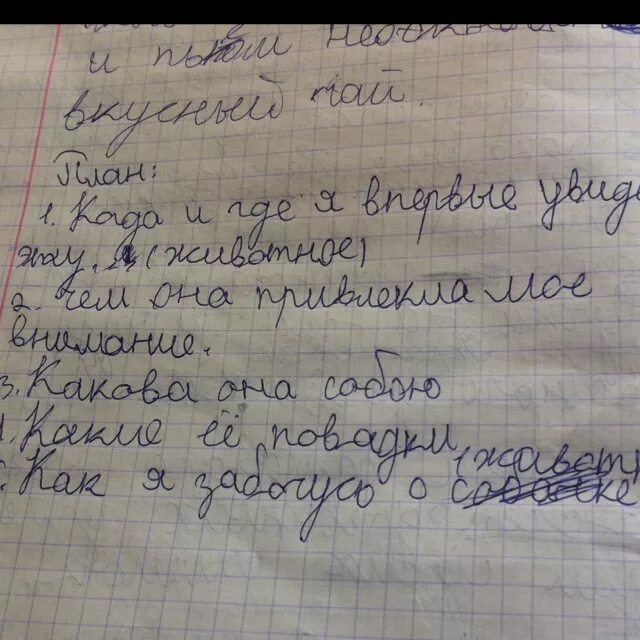 и пьём
вкусный чай.
План:
1. Када и где я впервые увиде
эту (животное)
2. чем она привлекла мое
внимание.
3. Какова она собою
Какие её повадки
Как я забочусь о (живот